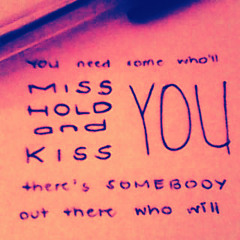 You need some who'll
MISS
HOLD
and
KISS
YOU
there's SOMEBODY
out there who will